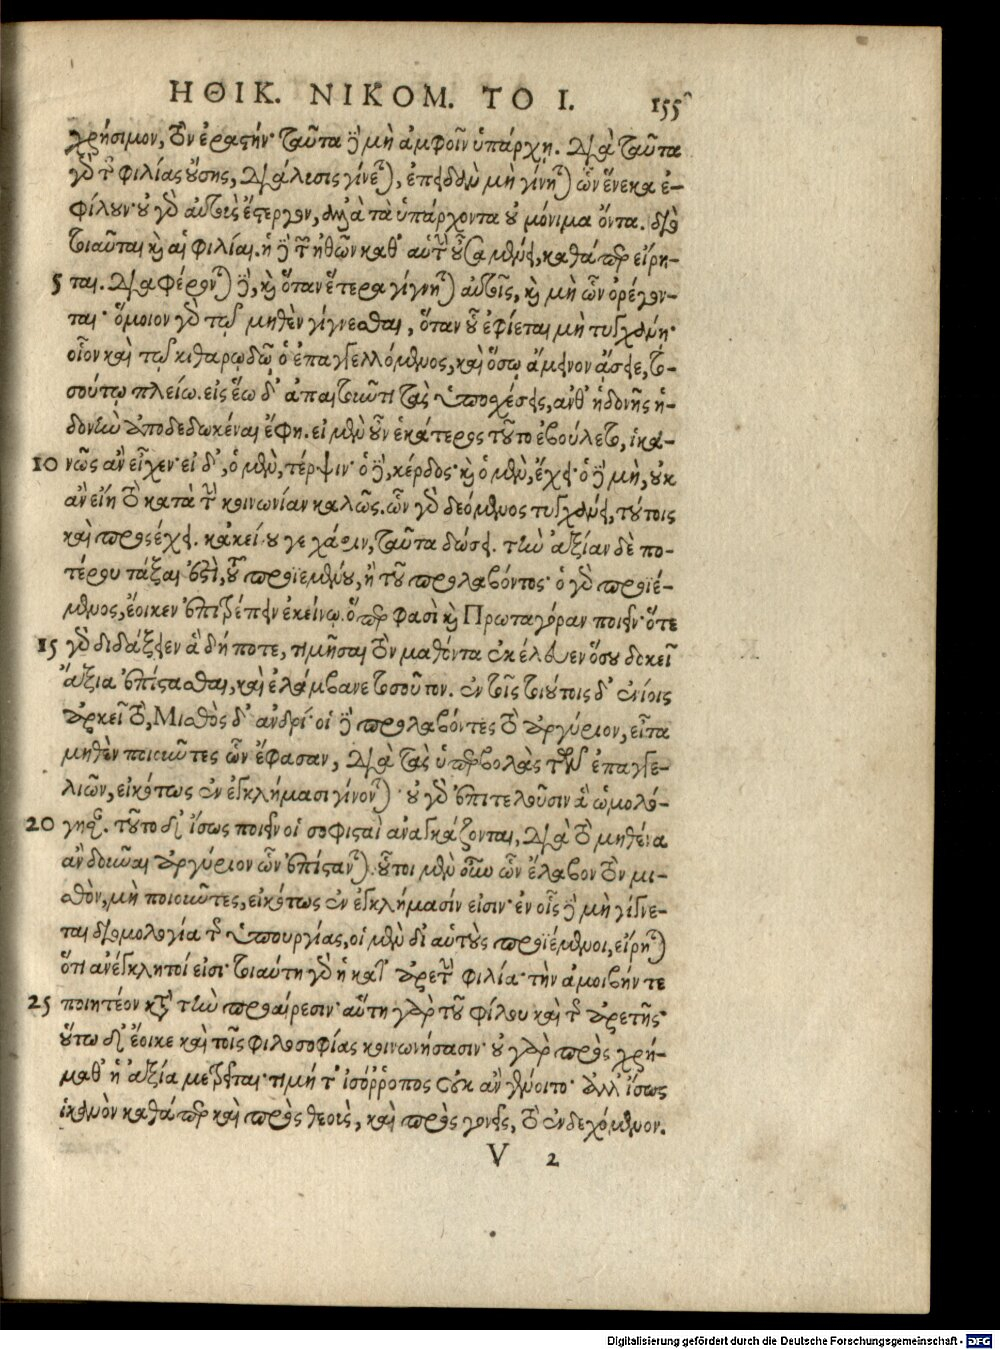 ΗΘΙΚ. ΝΙΚΟΜ. ΤΟ Ι. 155
χρήσιμον, τὸν ἐραστήν· ταῦτα δὲ μὴ ἀμφοῖν ὑπάρχῃ. διὰ ταῦτα
γὰρ τῆς φιλίας οὔσης, διάλυσις γίνεται, ἐπειδὰν μὴ γίνηται ὧν ἕνεκα ἐ-
φίλουν· οὐ γὰρ αὐτοὺς ἔστεργον, ἀλλὰ τὰ ὑπάρχοντα οὐ μόνιμα ὄντα. διὸ
τοιαῦται καὶ αἱ φιλίαι. ἡ δὲ τῶν ἠθῶν καθ' αὑτὴν οὖσα μένει, καθάπερ εἴρη-
5 ται. διαφέρονται δὲ, καὶ ὅταν ἕτερα γίγνηται αὐτοῖς, καὶ μὴ ὧν ὀρέγον-
ται· ὅμοιον γὰρ τῷ μηθὲν γίγνεσθαι, ὅταν οὗ ἐφίεται μὴ τυγχάνῃ·
οἷον καὶ τῷ κιθαρῳδῷ ὁ ἐπαγγελλόμενος, καὶ ὅσῳ ἄμεινον ᾄσειε, το-
σούτῳ πλείω. εἰς ἕω δ' ἀπαιτοῦντι τὰς ὑποσχέσεις, ἀνθ' ἡδονῆς ἡ-
δονὴν ἀποδεδωκέναι ἔφη. εἰ μὲν οὖν ἑκάτερος τοῦτο ἐβούλετο, ἱκα-
10 νῶς ἂν εἶχεν· εἰ δ', ὁ μὲν, τέρψιν· ὁ δὲ, κέρδος· καὶ ὁ μὲν, ἔχει· ὁ δὲ μὴ, οὐκ
ἂν εἴη τὸ κατὰ τὴν κοινωνίαν καλῶς. ὧν γὰρ δεόμενος τυγχάνει, τούτοις
καὶ προσέχει. κἀκείνου γε χάριν, ταῦτα δώσει. τὴν ἀξίαν δὲ πο-
τέρου τάξαι ἐστὶ, τοῦ προϊεμένου, ἢ τοῦ προλαβόντος· ὁ γὰρ προϊέ-
μενος, ἔοικεν ἐπιτρέπειν ἐκείνῳ. ὅπερ φασὶ καὶ Πρωταγόραν ποιεῖν· ὅτε
15 γὰρ διδάξειεν ἃ δήποτε, τιμῆσαι τὸν μαθόντα ἐκέλευεν ὅσου δοκεῖ
ἄξια ἐπίστασθαι, καὶ ἐλάμβανε τοσοῦτον. ἐν τοῖς τοιούτοις δ' ἐνίοις
ἀρκεῖ τὸ, Μισθὸς δ' ἀνδρί· οἱ δὲ προλαβόντες τὸ ἀργύριον, εἶτα
μηθὲν ποιοῦντες ὧν ἔφασαν, διὰ τὰς ὑπερβολὰς τῶν ἐπαγγε-
λιῶν, εἰκότως ἐν ἐγκλήμασι γίνονται· οὐ γὰρ ἐπιτελοῦσιν ἃ ὡμολό-
20 γησαν. τοῦτο δ' ἴσως ποιεῖν οἱ σοφισταὶ ἀναγκάζονται, διὰ τὸ μηθένα
ἂν δοῦναι ἀργύριον ὧν ἐπίστανται. οὗτοι μὲν οὖν ὧν ἔλαβον τὸν μι-
σθὸν, μὴ ποιοῦντες, εἰκότως ἐν ἐγκλήμασίν εἰσιν· ἐν οἷς δὲ μὴ γίγνε-
ται διομολογία τῆς ὑπουργίας, οἱ μὲν δι' αὑτοὺς προϊέμενοι, εἴρηται
ὅτι ἀνέγκλητοί εἰσι· τοιαύτη γὰρ ἡ κατ' ἀρετὴν φιλία· τὴν ἀμοιβήν τε
25 ποιητέον κατὰ τὴν προαίρεσιν· αὕτη γὰρ τοῦ φίλου καὶ τῆς ἀρετῆς·
οὕτω δ' ἔοικε καὶ τοῖς φιλοσοφίας κοινωνήσασιν· οὐ γὰρ πρὸς χρή-
μαθ' ἡ ἀξία μετρεῖται· τιμή τ' ἰσόρροπος οὐκ ἂν γένοιτο· ἀλλ' ἴσως
ἱκανὸν καθάπερ καὶ πρὸς θεοὺς, καὶ πρὸς γονεῖς, τὸ ἐνδεχόμενον.
V 2
Digitalisierung gefördert durch die Deutsche Forschungsgemeinschaft - DFG